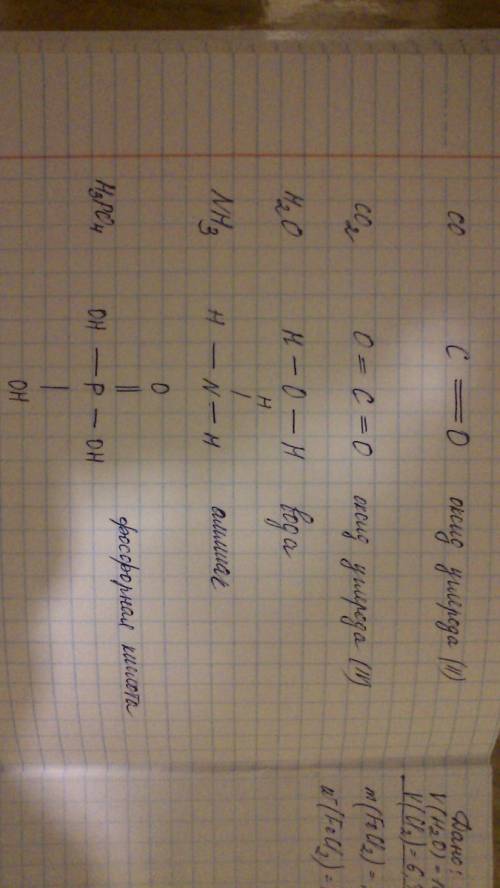 CO C = O оксид углерода (II)
CO₂ O = C = O оксид углерода (IV)
H₂O H — O — H вода
H
|
NH₃ H — N = H аммиак
O
||
H₃PO₄ OH — P — OH фосфорная кислота
|
OH
Дано:
V(H₂O) =
m(FeCl₂) =